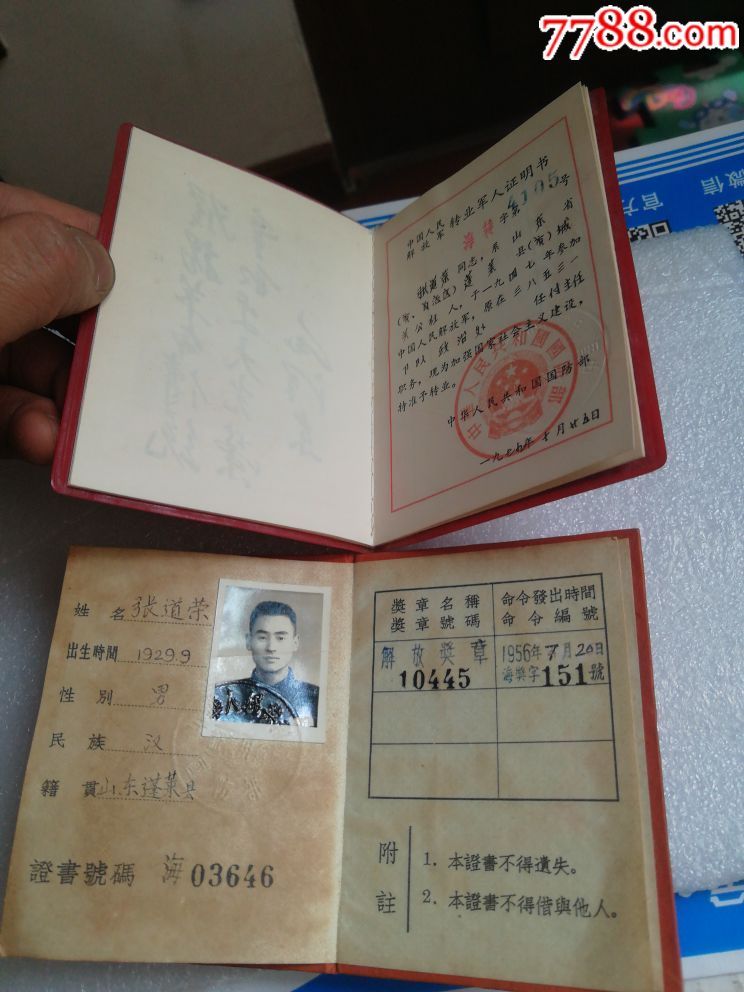 7788.com
官方
微信
中国人民
解放军 转业军人证明书
字第4105号
张道荣同志,系山东省
(市、自治区)蓬莱县(市)城
关公社人,于一九四七年参加
中国人民解放军,原在三八五三一
部队政治处 任付主任
职务,现为加强国家社会主义建设,
特准予转业。
中华人民共和国国防部
一九七九年十月廿五日
姓名 张道荣
出生時間 1929.9
性別 男
民族 汉
籍貫 山东蓬莱县
證書號碼 海03646
獎章名稱
獎章號碼
命令發出時間
命令編號
解放獎章
10445
1956年7月20日
海獎字151號
附註
1. 本證書不得遺失。
2. 本證書不得借與他人。